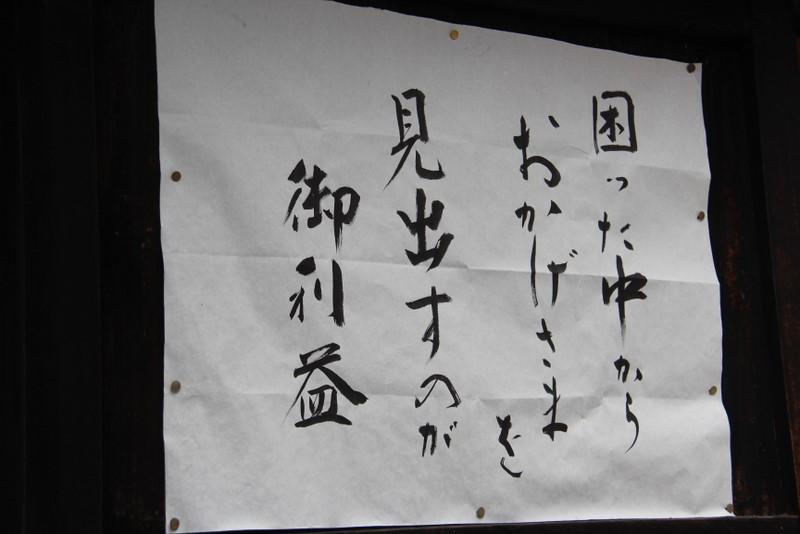 困った中から
おかげさまを
見出すのが
御利益